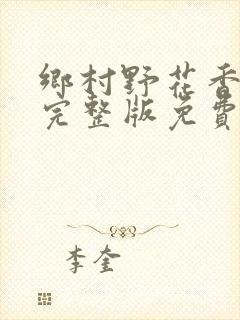 鄉村野花香
完整版免費
李奎